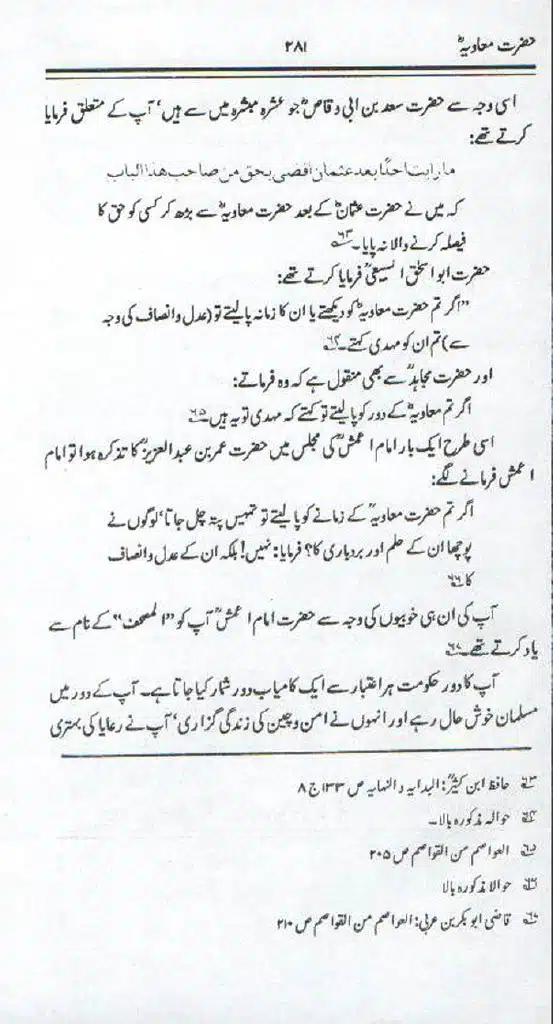 حضرت معاویہؓ ۲۸۱
اسی وجہ سے حضرت سعد بن ابی وقاصؓ جو عشرہ مبشرہ میں سے ہیں، آپ کے متعلق فرمایا
کرتے تھے:
ما رایت احدًا بعد عثمان اقضی بحق من صاحب هذا الباب
کہ میں نے حضرت عثمانؓ کے بعد حضرت معاویہؓ سے بڑھ کر کسی کو حق کا
فیصلہ کرنے والا نہ پایا۔ ۶۳
حضرت ابو اسحٰق السبیعیؒ فرمایا کرتے تھے:
"اگر تم حضرت معاویہؓ کو دیکھتے یا ان کا زمانہ پا لیتے تو (عدل و انصاف کی وجہ
سے) تم ان کو مہدی کہتے۔ ۶۴
اور حضرت مجاہدؒ سے بھی منقول ہے کہ وہ فرماتے:
اگر تم معاویہؓ کے دور کو پا لیتے تو کہتے کہ مہدی تو یہ ہیں۔ ۶۵
اسی طرح ایک بار امام اعمشؒ کی مجلس میں حضرت عمر بن عبدالعزیزؒ کا تذکرہ ہوا تو امام
اعمش فرمانے لگے:
اگر تم حضرت معاویہؓ کے زمانے کو پا لیتے تو تمہیں پتہ چل جاتا، لوگوں نے
پوچھا ان کے حلم اور بردباری کا؟ فرمایا: نہیں! بلکہ ان کے عدل و انصاف
کا ۶۶
آپ کی ان ہی خوبیوں کی وجہ سے حضرت امام اعمشؒ آپ کو "المصحف" کے نام سے
یاد کرتے تھے۔ ۶۷
آپ کا دور حکومت ہر اعتبار سے ایک کامیاب دور شمار کیا جاتا ہے۔ آپ کے دور میں
مسلمان خوش حال رہے اور انہوں نے امن و چین کی زندگی گزاری، آپ نے رعایا کی بہتری
۶۳ حافظ ابن کثیرؒ: البدایہ و النہایہ ص ۱۳۳ ج ۸
۶۴ حوالہ مذکورہ بالا۔
۶۵ العواصم من القواصم ص ۲۰۵
۶۶ حوالا مذکورہ بالا
۶۷ قاضی ابو بکر بن عربی: العواصم من القواصم ص ۲۱۰